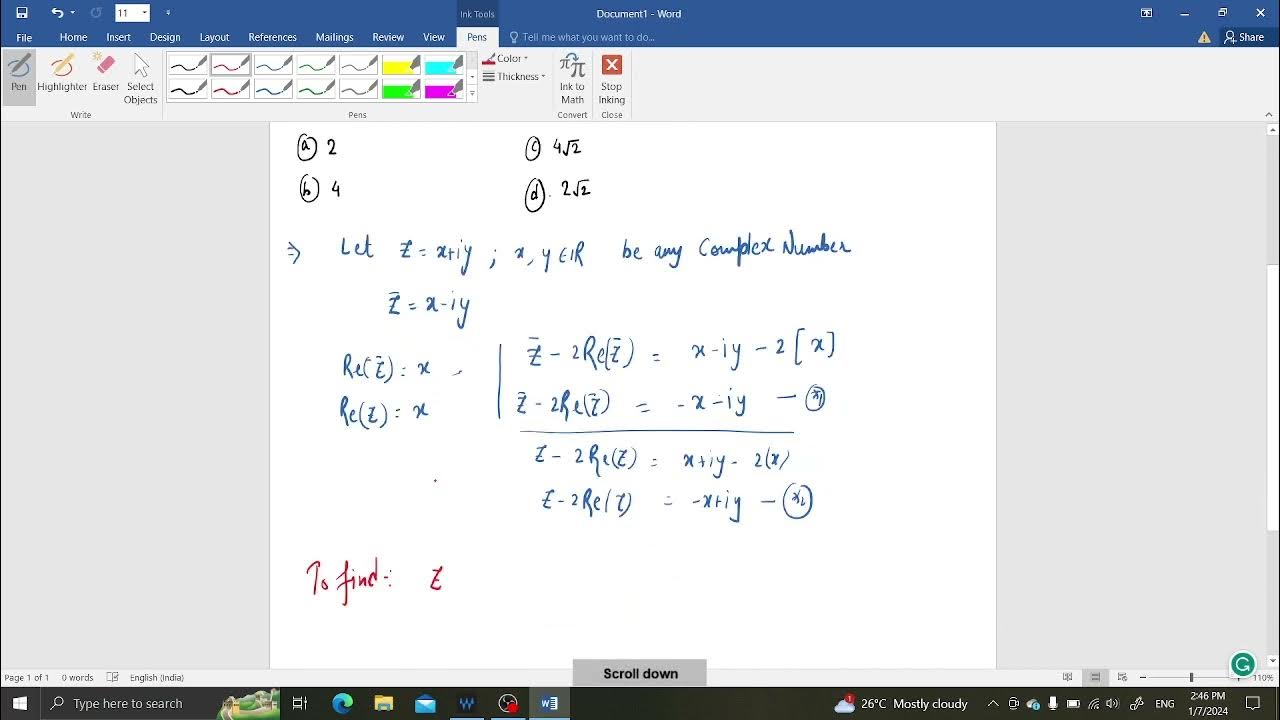 11
Ink Tools
Document1 - Word
File Home Insert Design Layout References Mailings Review View Pens Tell me what you want to do... Share
Pen Highlighter Eraser Select Objects
Color
Thickness
Ink to Math
Stop Inking
Write Pens Convert Close
(a) 2 (c) 4√2
(b) 4 (d) 2√2
⇒ Let z = x+iy ; x, y ∈ IR be any Complex Number
z̄ = x-iy
Re(z̄) = x
Re(z) = x
z̄ - 2Re(z̄) = x-iy - 2[x]
z̄ - 2Re(z̄) = -x-iy
z - 2Re(z) = x+iy - 2(x)
z - 2Re(z) = -x+iy
To find:- z
Scroll down
Page 1 of 1 0 words English (India) 110%
Type here to search
1
26°C Mostly cloudy
ENG
2:46 PM
1/7/2024